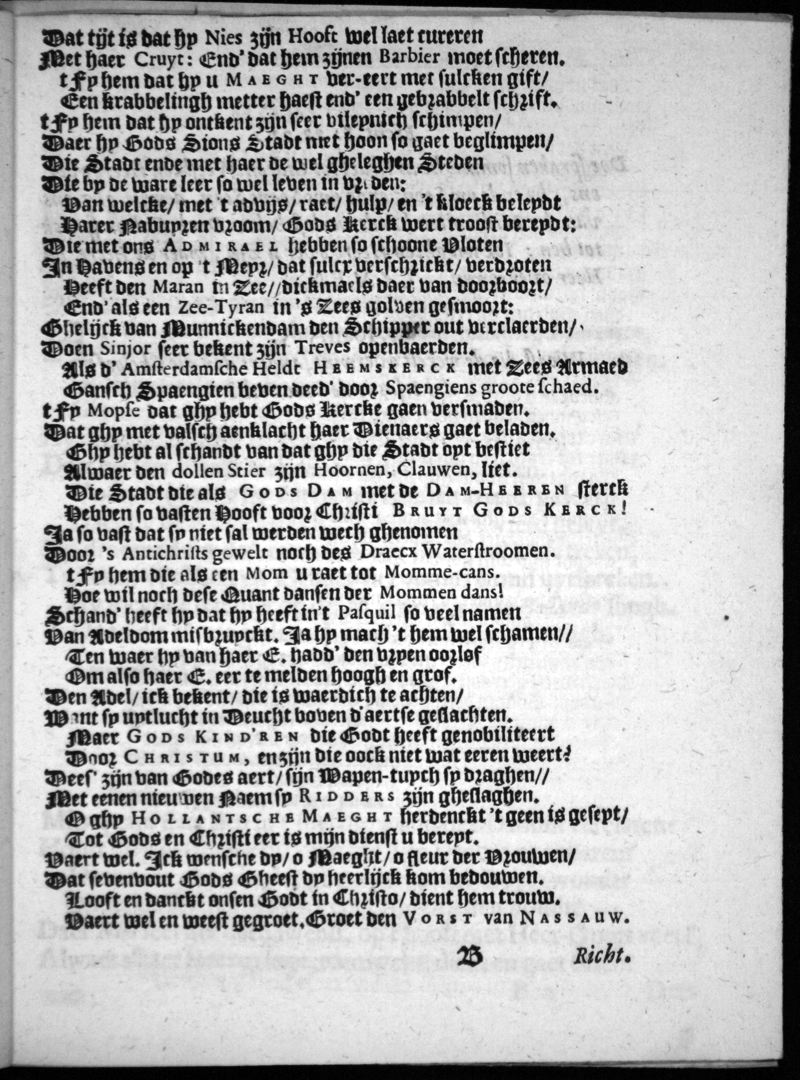 Dat tijt is dat hy Nies zijn Hooft wel laet cureren
Met haer Cruyt: End' dat hem zijnen Barbier moet scheren.
t'Fy hem dat hy u MAEGHT ver-eert met sulcken gift/
Een krabbelingh metter haest end' een gebrabbelt schrift.
t'Fy hem dat hy ontkent zijn seer vileynich schimpen/
Daer hy Gods Sions Stadt met hoon so gaet beglimpen/
Die Stadt ende met haer de wel gheleghen Steden
Die by de ware leer so wel leven in vreden:
Van welcke/ met 't advijs/ raet/ hulp/ en 't kloeck beleydt
Harer Nabuyren vroom/ Gods Kerck wert troost bereydt:
Die met ons ADMIRAEL hebben so schoone Vloten
In Havens en op 't Meyr/ dat sulcx verschrickt/ verdroten
Heeft den Maran in Zee// dickmaels daer van doorboort/
End' als een Zee-Tyran in 's Zees golven gesmoort:
Ghelijck van Munnickendam den Schipper out verclaerden/
Doen Sinjor seer bekent zijn Treves openbaerden.
Als d' Amsterdamsche Heldt HEEMSKERCK met Zees Armaed
Gansch Spaengien beven deed' door Spaengiens groote schaed.
t'Fy Mopse dat ghy hebt Gods Kercke gaen versmaden.
Dat ghy met valsch aenklacht haer Dienaers gaet beladen.
Ghy hebt al schandt van dat ghy die Stadt opt bestiet
Alwaer den dollen Stier zijn Hoornen, Clauwen, liet.
Die Stadt die als GODS DAM met de DAM-HEEREN sterck
Hebben so vasten Hooft voor Christi BRUYT GODS KERCK!
Ja so vast dat sy niet sal werden wech ghenomen
Door 's Antichrists gewelt noch des Draecx Waterstroomen.
t'Fy hem die als een Mom u raet tot Momme-cans.
Hoe wil noch dese Quant dansen der Mommen dans!
Schand' heeft hy dat hy heeft in't Pasquil so veel namen
Van Adeldom misbruyckt. Ja hy mach 't hem wel schamen//
Ten waer hy van haer E. hadd' den vryen oorlof
Om also haer E. eer te melden hoogh en grof.
Den Adel/ ick bekent/ die is waerdich te achten/
Want sy uytlucht in Deucht boven d'aertse geslachten.
Maer GODS KIND'REN die Godt heeft genobiliteert
Door CHRISTUM, en zijn die oock niet wat eeren weert?
Dees' zijn van Godes aert/ sijn Wapen-tuych sy draghen//
Met eenen nieuwen Naem sy RIDDERS zijn gheslaghen.
O ghy HOLLANTSCHE MAEGHT herdenckt 't geen is geseyt/
Tot Gods en Christi eer is mijn dienst u bereyt.
Vaert wel. Ick wensche dy/ o Maeght/ o fleur der Vrouwen/
Dat sevenvout Gods Gheest dy heerlijck kom bedouwen.
Looft en danckt onsen Godt in Christo/ dient hem trouw.
Vaert wel en weest gegroet. Groet den VORST van NASSAUW.
B Richt.